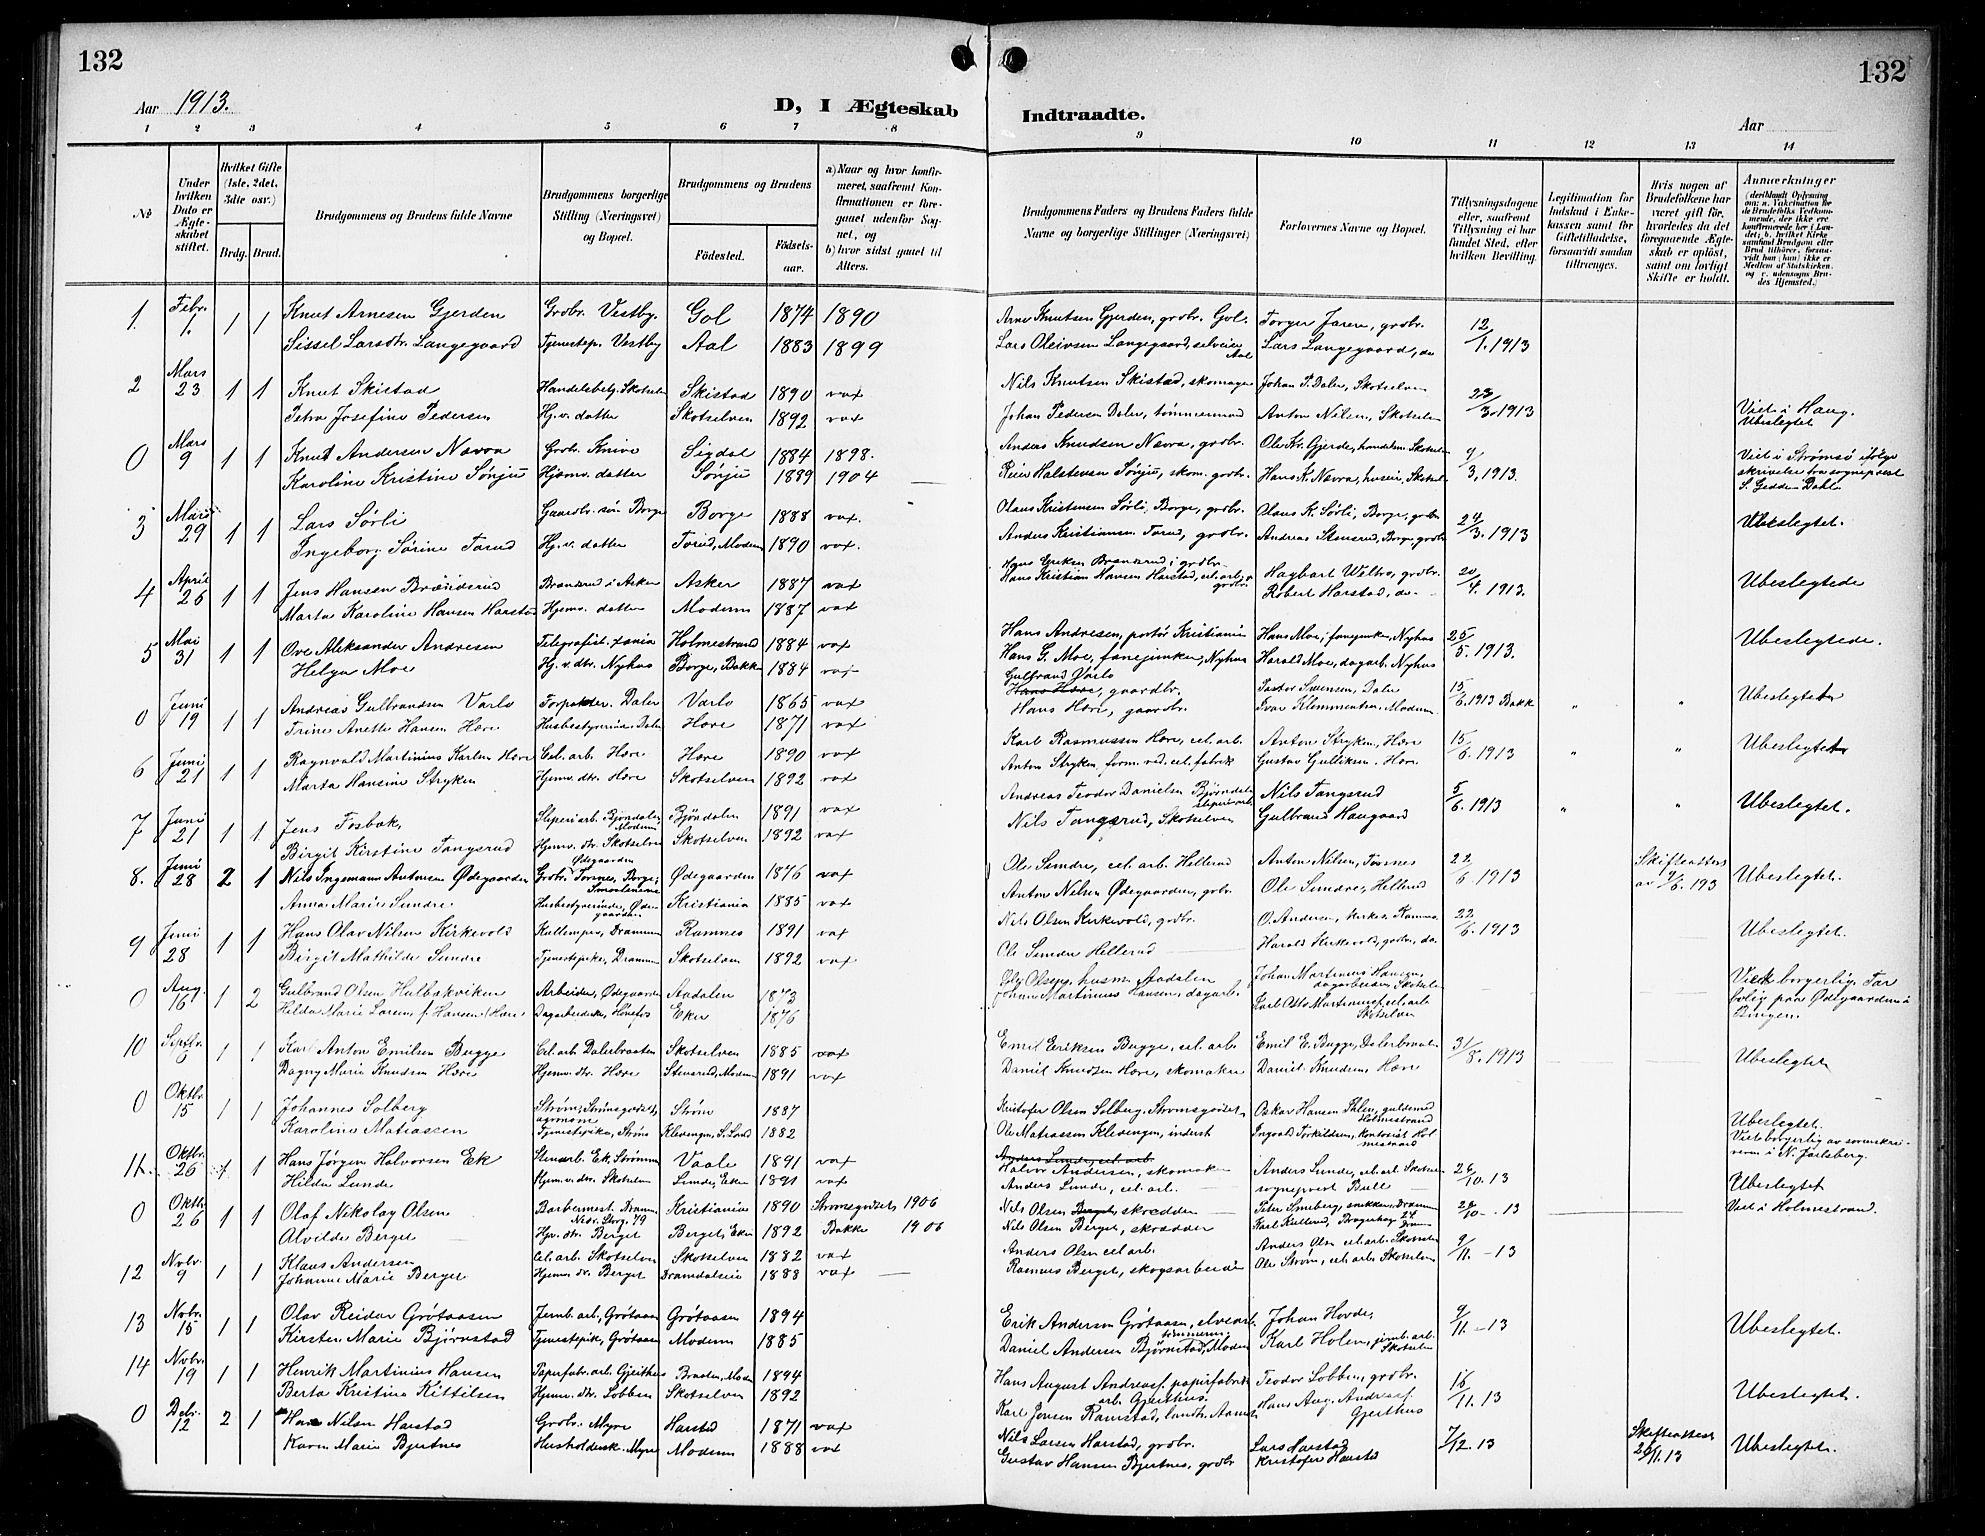 132
132
Aar 1913.
D, I Ægteskab
Indtraadte.
Aar
1 2 3 4 5 6 7 8 9 10 11 12 13 14
No
Under hvilken Dato er Ægteskabet stiftet.
Hvilket Gifte (1ste, 2det, 3dte osv.)
Brdg. Brud.
Brudgommens og Brudens fulde Navne
Brudgommens borgerlige Stilling (Næringsvei) og Bopæl.
Brudgommens og Brudens
Fødested.
Fødselsaar.
a) Naar og hvor konfirmeret, saafremt Konfirmationen er foregaaet udenfor Sognet, og
b) hvor sidst gaaet til Alters.
Brudgommens Faders og Brudens Faders fulde Navne og borgerlige Stillinger (Næringsvei)
Forlovernes Navne og Bopæl.
Tillysningsdagene eller, saafremt Tillysning ei har fundet Sted, efter hvilken Bevilling.
Legitimation for Indskud i Enkekassen samt for Giftetilladelse, forsaavidt saadan tiltrænges.
Hvis nogen af Brudefolkene har været gift før, hvorledes da det foregaaende Ægteskab er opløst, samt om lovligt Skifte er holdt.
Anmærkninger (deriblandt Oplysning om: a. Vakcination for de Brudefolks Vedkommende, der ikke ere konfirmerede her i Landet; b. hvilket Kirkesamfund Brudgom eller Brud tilhører, forsaavidt han (hun) ikke er Medlem af Statskirken, og c. udensogns Brudes Hjemsted.)
1. Febr. 1. 1 1 Knut Arnesen Gjerden Grdbr. Vestby. Gol 1874 1890 Arne Knutsen Gjerden, grdbr. Gol. Torger Jaren, grdbr. 12/1. 1913
Sissel Larsdtr. Langegaard Tjenestep. Vestby Aal 1883 1899 Lars Oleivsen Langegaard, selveier Aal Lars Langegaard, do
2 Mars 23 1 1 Knut Skistad Handelsbetj. Skotselv Skistad 1890 vax Nils Knutsen Skistad, skomager Johan P. Dalen, Skotselven 23/3. 1913 Viet i Haug.
Petra Josefine Pedersen Hj. v. datter Skotselven 1892 vax Johan Pedersen Dalen, tømmermand Anton Nilsen, Skotselven Ubeslegtet
0 Mars 9 1 1 Knut Andersen Nævra Grdb. Knive Sigdal 1884 1898. Anders Knudsen Nævra, grdbr. Ole Kr. Gjerde, handelsm. Skotselv 9/3, 1913. Viet i Strømsø ifølge
Karoline Kristine Sønju Hjemv. datter Sønju 1889 1904 Reier Halstensen Sønju, skom. grdbr. Hans K. Nævra, huseier, Skotselv skrivelse fra sogneprest
S. Gedde-Dahl.
3 Mars 29 1 1 Lars Sørli Gaardbr. søn Borge Borge 1888 vax. Olaus Kristensen Sørli, Borge, grdbr. Olaus K. Sørli, Borge, grdbr 24/3. 1913 Ubeslegtet.
Ingeborg Sørine Torud Hj. v. datter Torud, Modum 1890 vax. Anders Kristiansen Torud, grdbr. Andreas Stensrud, Borge, grdbr
4 April 26 1 1 Jens Hansen Brønnerud Asker 1887 vax Hagbart Welbo, grdbr. 20/4. 1913. Ubeslegtede
Marta Karoline Hansen Harstad Hjemv. datter Modum 1887 vax Hans Kristian Hansen Harstad, cel. arb. + grdbr. Robert Harstad, do.
5 Mai 31 1 1 Ove Aleksander Andresen Telegrafist. Holmestrand 1884 vax Hans Andresen, portør Kristiania Hans Moe, fanejunker, Nyhus 25/5. 1913. Ubeslegtede.
Helga Moe Hj. v. dtr. Nyhus Borge, Bakke 1884 vax Hans G. Moe, fanejunker, Nyhus Harald Moe, dagarb. Nyhus
0 Juni 19 1 1 Andreas Gulbrandsen Varlo Forpakter. Dalen Varlo 1865 vax Gulbrand Varlo gaardbr. Pastor Svensen, Dalen 15/6. 1913 Bakk " " Ubeslegtet
Trine Anette Hansen Hære Husbestyrerinde Dalen Hære 1871 vax Hans Hære, gaardbr. Ivar Klemmentsen, Modum.
6 Juni 21 1 1 Ragnvald Martinius Karlsen Hære Cel. arb. Hære Hære 1890 vax Karl Rasmussen Hære, cel. arb. Anton Stryken, Hære 15/6. 1913 " " Ubeslegtet
Marta Hansine Stryken Hjemv. dtr. Hære Skotselven 1892 vax Anton Stryken, form. ved cel. fabrik Gustav Gulliksen. Hære
7 Juni 21 1 1 Jens Fosbak, Sliperiarb. Bjøndalen Modum Bjøndalen 1891 vax Andreas Teodor Danielsen Bjøndalen sliperiarb. Nils Tangsrud 5/6. 1913 " " Ubeslegtet.
Birgit Kirstine Tangsrud Hjemv. dtr. Skotselven Skotselven 1892 vax Nils Tangsrud, Skotselven Gulbrand Haugaard
8. Juni 28 2 1 Nils Ingemann Antonsen Ødegaarden Grdbr. Borge, Ødegaarden 1876 vax Ole Sundre, cel. arb. Hellerud Anton Nilsen, 22/6. 1913 Skifteattest av 9/6. 193 Ubeslegtet.
Anna Marie Sundre Husbestyrerinde, Ødegaarden Kristiania 1885 vax Anton Nilsen Ødegaarden, grbr. Ole Sundre, Hellerud
9 Juni 28 1 1 Hans Olav Nilsen Kirkevold Kullemper, Drammen Ramnes 1891 vax Nils Olsen Kirkevold, grdbr. O. Andersen, Ramnes 22/6. 1913 Ubeslegtet.
Birgit Mathilde Sundre Tjenestepike, Drammen Skotselven 1892 vax Ole Sundre Hellerud Harald Kirkevold, grdbr., do.
0 Aug. 16 1 2 Gulbrand Olsen Hulbakviken Arbeider, Ødegaarden Aadalen 1873 husm. Aadalen Johan Martinius Hansen, dagarbeider, Skotselv Viet borgerlig. Tar
Hilda Marie Larsen f. Hansen (Hære) Dagarbeiderske, Hønefos Eker 1876 Johan Martinius Hansen, dagarb. Karl Otto Martinussen, cel. arb. Skotselven bolig paa Ødegaarden i
Bingen.
10 Septbr. 6 1 1 Karl Anton Emilsen Bugge Cel. arb. Dalerbraaten Skotselven 1885 vax Emil Eriksen Bugge, cel. arb. Emil E. Bugge, Dalerbraaten 31/8. 1913 Ubeslegtet
Dagny Marie Knudsen Hære Hjemv. dtr. Hære Stensrud, Modum 1891 vax Daniel Knudsen Hære, skomaker Daniel Knudsen, Hære
0 Oktbr. 15 1 1 Johannes Solberg Strøm, Strømsgodset, agronom Strøm 1887 Kristofer Olsen Solberg, Strømsgodset, Oskar Hansen Ihlen, guldsmed Holmestrand Ubeslegtet.
Karoline Matiassen Tjenestepike, Strøm Klevengen, S. Land 1882 Ole Matiassen Klevengen, inderst Ingvald Torkildsen, kontorist Holmestrand Viet borgerlig av sorenskriveren i N. Jarlsberg.
11. Oktbr. 26 1 1 Hans Jørgen Halvorsen Ek Stenarb. Ek, Strømmen Vaale 1891 vax Anders Lunde, cel. arb. Halvor Andersen, skomaker Anders Lunde, cel. arb. Skotselv 26/10. 13 Ubeslegtet
Hilda Lunde Hjem. v. dtr. Skotselven Lunde, Eker 1891 vax Anders Lunde, cel. arb. sogneprest Bull
0 Oktbr. 26 1 1 Olaf Nikolay Olsen Barbermest. Drammen Nedre Storg. 79 Kristiania 1890 Strømsgodset, 1906 Nils Olsen Berget, skrædder Peter Smeberg, snekker, Drammen 26/10 - 13 Viet i Holmestrand.
Alvilde Berget Hjv. dtr. Berget Berget, Eker 1892 Bakke 1906 Nils Olsen Berget, skrædder
12 Novbr. 9 1 1 Klaus Andersen Cel. arb. Skotselven Skotselven 1882 vax Anders Olsen cel. arb. Anders Olsen cel. arb. Skotselv 9/11. - 13
Johanne Marie Berget Hjemv. dtr. Berget Dramdalseie 1888 vax Rasmus Berget, skogsarbeider Ole Strøm, cel. arb. Skotselven
13 Novbr. 15 1 1 Olav Reidar Grøtaasen Jernb. arb, Grøtaasen Grøtaasen 1894 Erik Andersen Grøtaasen, Johan Hovde, 9/11. - 13 Ubeslegtet.
Kirsten Marie Bjørnstad Tjenestepik, Grøtaasen Modum 1885 Daniel Andersen Bjørnstad, tømmerm. Modum Karl Holen, jernb. arb. Skotselven
14 Novbr. 19 1 1 Henrik Martinius Hansen Papirfabr. arb. Gjeithus Braaten, Modum 1894 Hans August Andreass. papirfabrik arb. Gjeithus. Teodor Lobben, grdbr. 16/11. 13 Ubeslegtet.
Berta Kristina Kittilsen Hjemv. dtr. Lobben Skotselven 1892 Karl Jensen Ramstad, Hans Aug. Andreass. Gjeithus
0 Debr. 12 2 1 Hans Nilsen Harstad Grdbr. Myre Harstad 1871 vax Nils Larsen Harstad, grdbr. Lars Harstad 7/12. 13 Skifteattest 26/11. 13 Ubeslegtet.
Karen Marie Bjertnes Husholdersk. Myre Modum 1888 vax Gustav Hansen Bjertnes, grdbr Kristofer Harstad